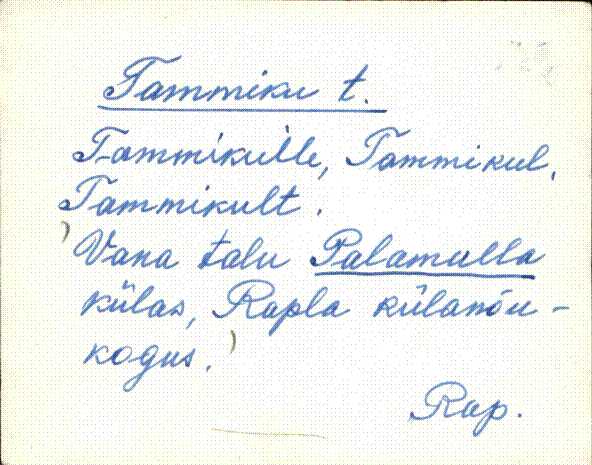 Tammiku t.
Tammikulle, Tammikul,
Tammikult.
)Vana talu Palamulla
külas, Rapla külanõu-
kogus.)
Rap.